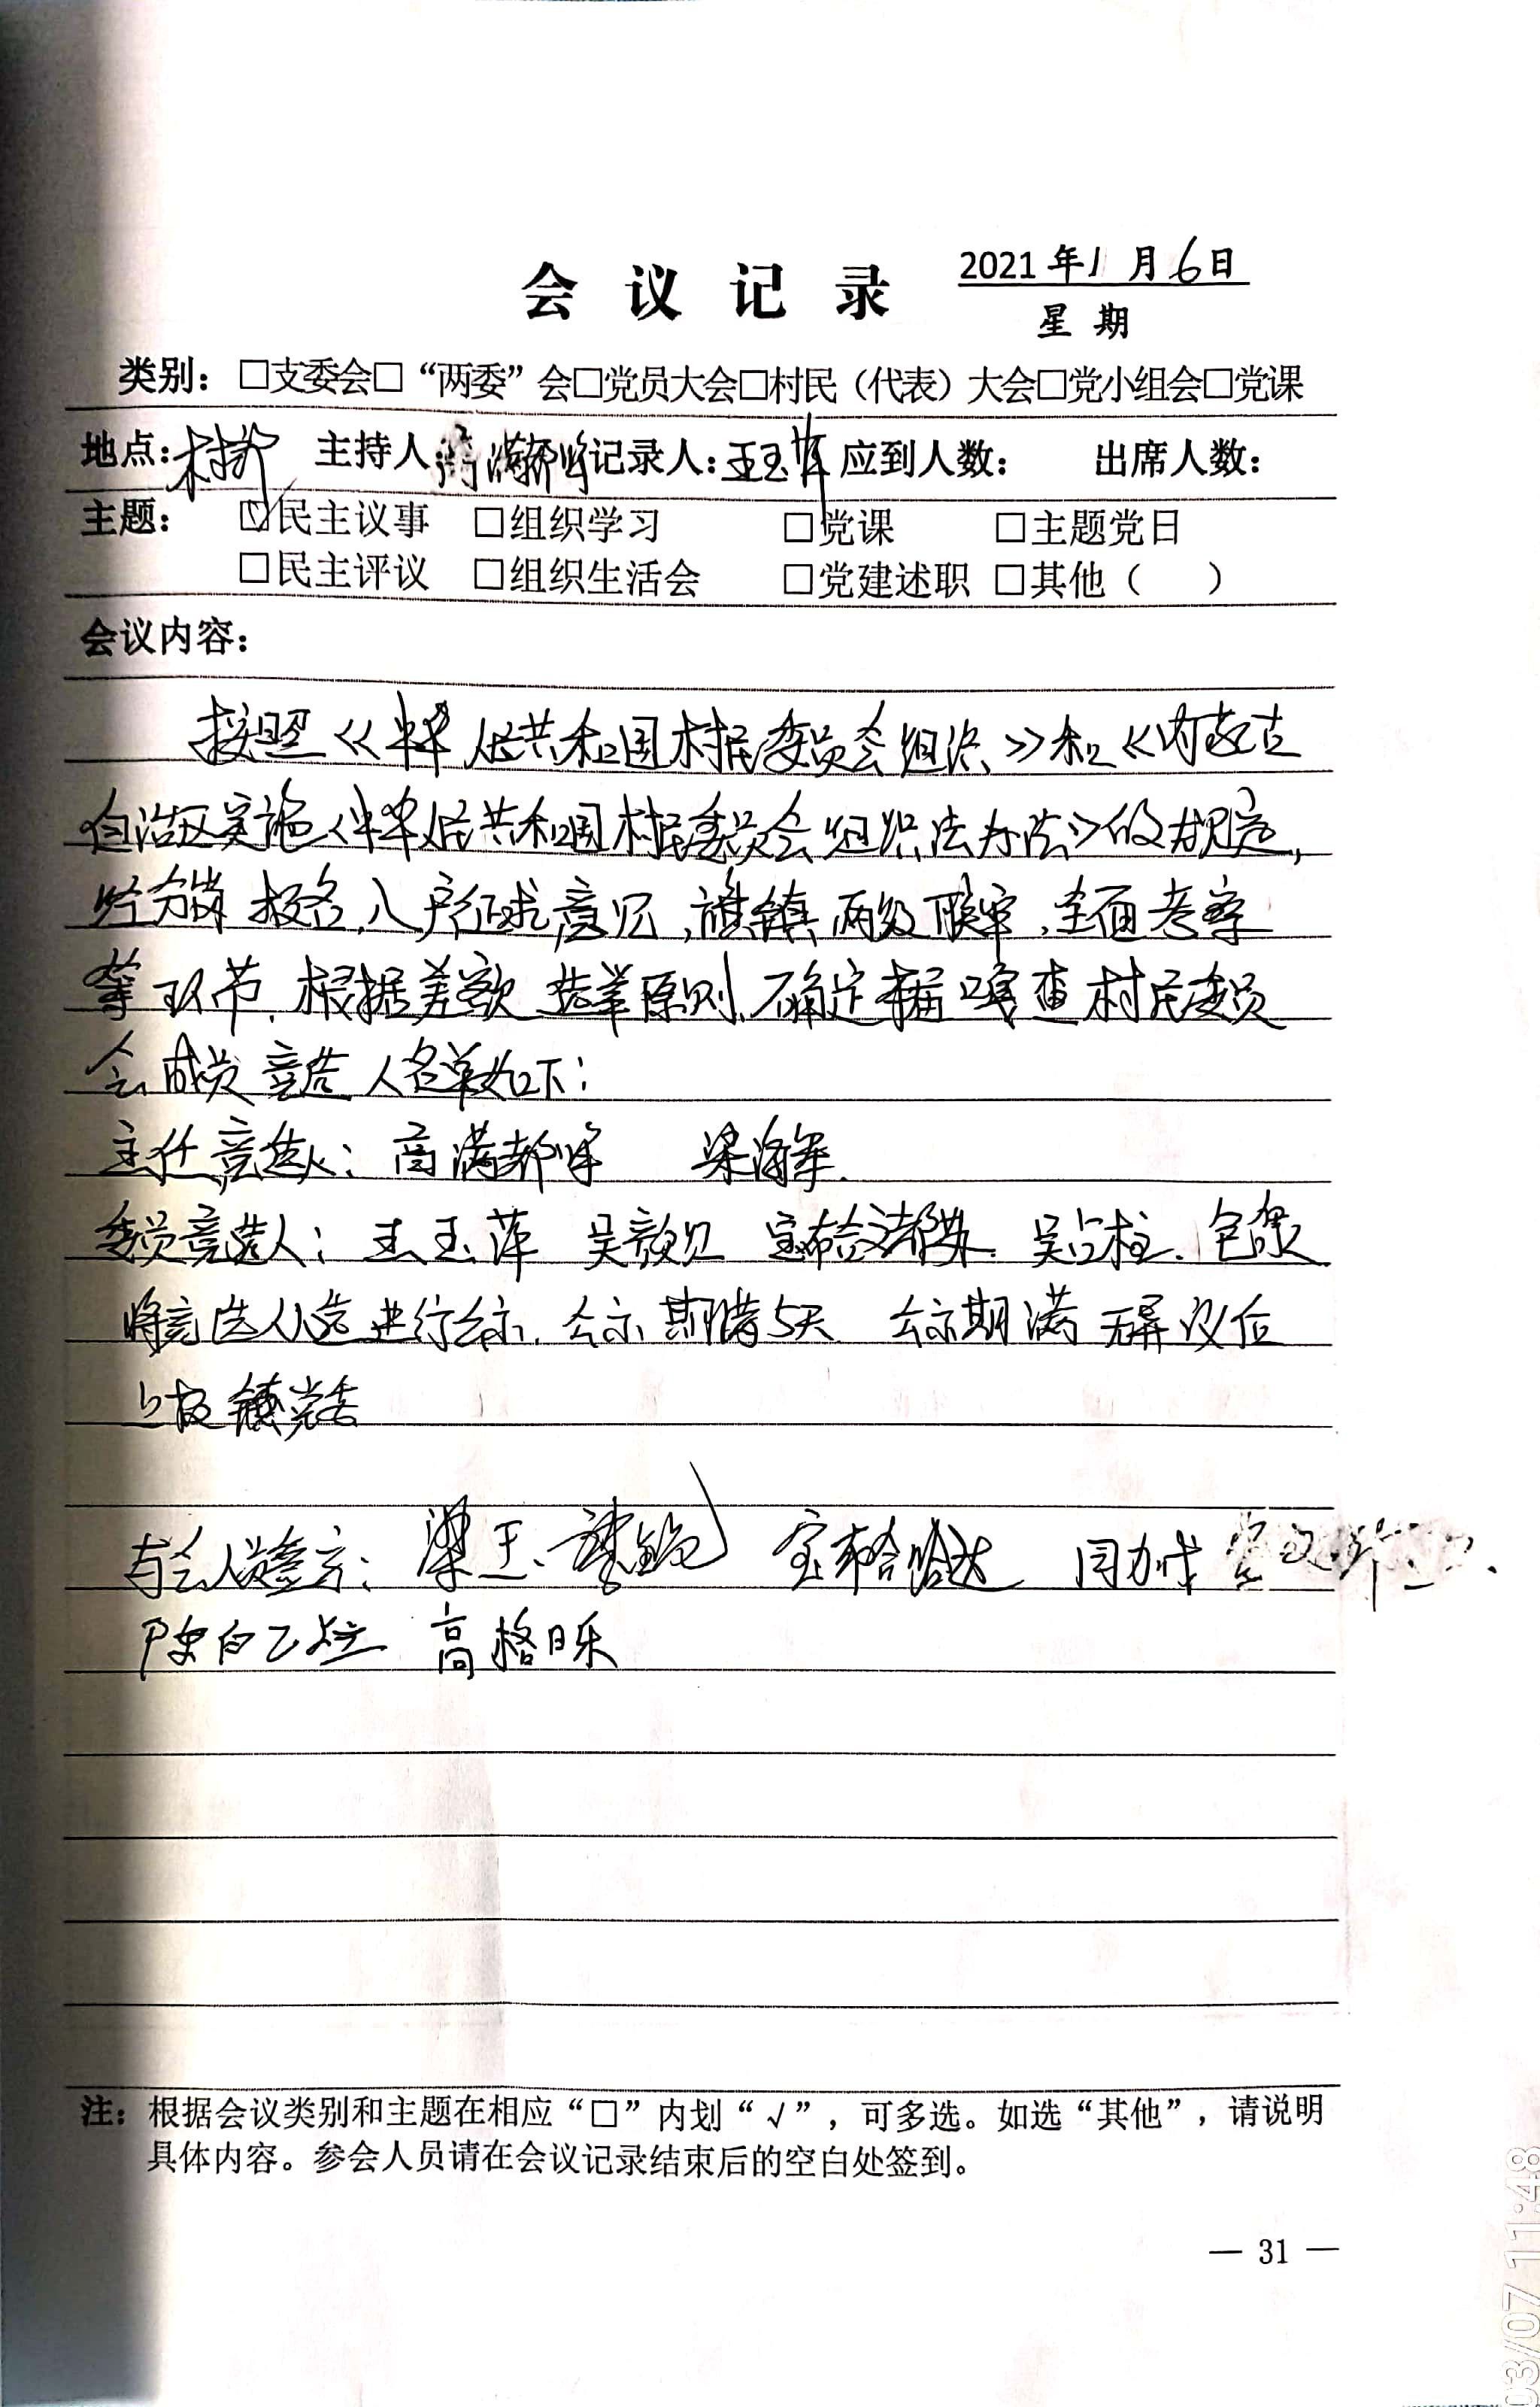 会议记录 2021年1月6日
星期
类别：□支委会□“两委”会□党员大会□村民（代表）大会□党小组会□党课
地点：村部 主持人 记录人：王玉萍 应到人数： 出席人数：
主题： ☑民主议事 □组织学习 □党课 □主题党日
□民主评议 □组织生活会 □党建述职 □其他（ ）
会议内容：
按照《中华人民共和国村民委员会组织》和《内蒙古
自治区实施《中华人民共和国村民委员会组织法办法》的规定，
经 报名，入户征求意见，旗镇两级联审，全面考察
等环节，根据差额选举原则，确定本届嘎查村民委员
会成员竞选人名单如下：
主任竞选人：商满都呼 梁海军
委员竞选人：王玉萍 吴 宝 吴占柱 包
将竞选人选进行公示，公示期满5天 公示期满无异议后
上报镇党委
与会人员签字：梁玉 宝
陈白乙拉 高格日乐
注：根据会议类别和主题在相应“□”内划“√”，可多选。如选“其他”，请说明
具体内容。参会人员请在会议记录结束后的空白处签到。
— 31 —
03/07 11:48